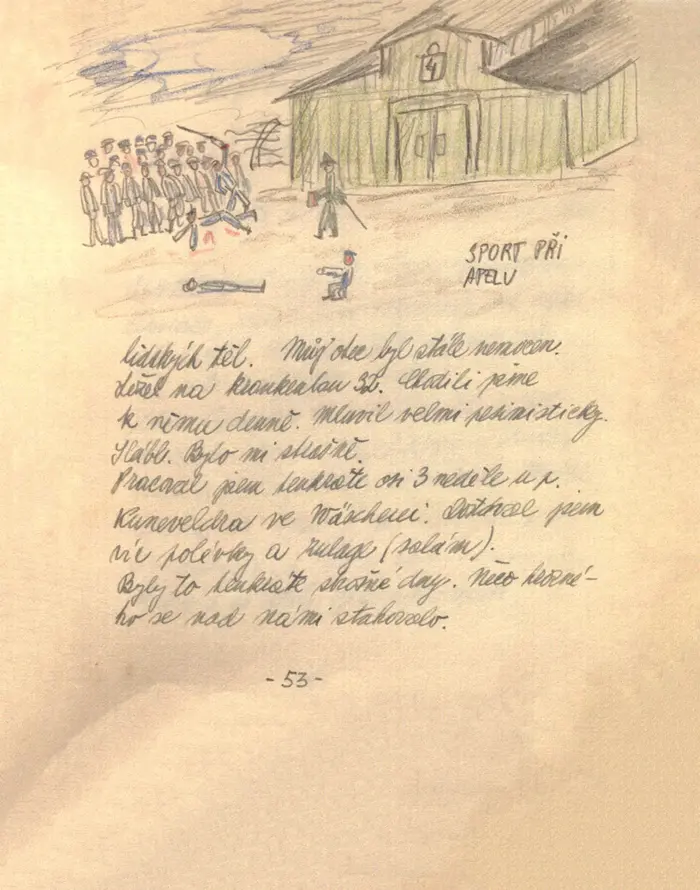 4
SPORT PŘI
APELU
lidských těl. Můj otec byl stále nemocen.
Ležel na krankenbau 32. Chodili jsme
k němu denně. Mluvil velmi pesimisticky.
Slábl. Bylo mi strašně.
Pracoval jsem tenkráte asi 3 neděle u p.
Kuneveldra ve Wäscherei. Dostával jsem
víc polévky a zulage (salám).
Byly to tenkráte strašné dny. Něco hrozné-
ho se nad námi stahovalo.
- 53 -